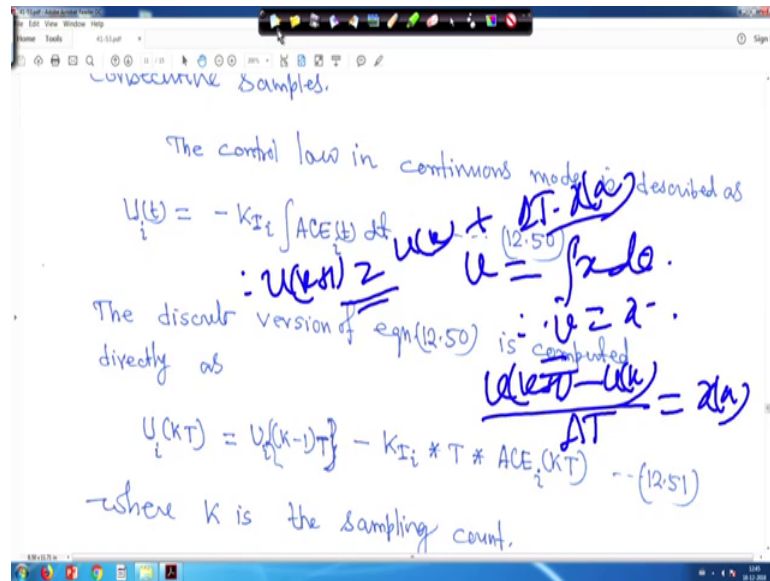 41-53.pdf - Adobe Acrobat Reader DC
File Edit View Window Help
Home Tools 41-53.pdf × Sign
Consecutive Samples.
The control law in continuous mode is described as
U_i(t) = - K_{Ii} ∫ ACE_i(t) dt -- (12.50)
∴ U(K+1) = U(K) + ΔT. x(K)
U = ∫ x dt.
∴ U̇ = x.
The discrete version of eqn(12.50) is computed
directly as
(U(K+1) - U(K)) / ΔT = x(K)
U_i(KT) = U_i{(K-1)T} - K_{Ii} * T * ACE_i(KT) --(12.51)
where K is the sampling count.
8.50 x 11.71 in
12:45